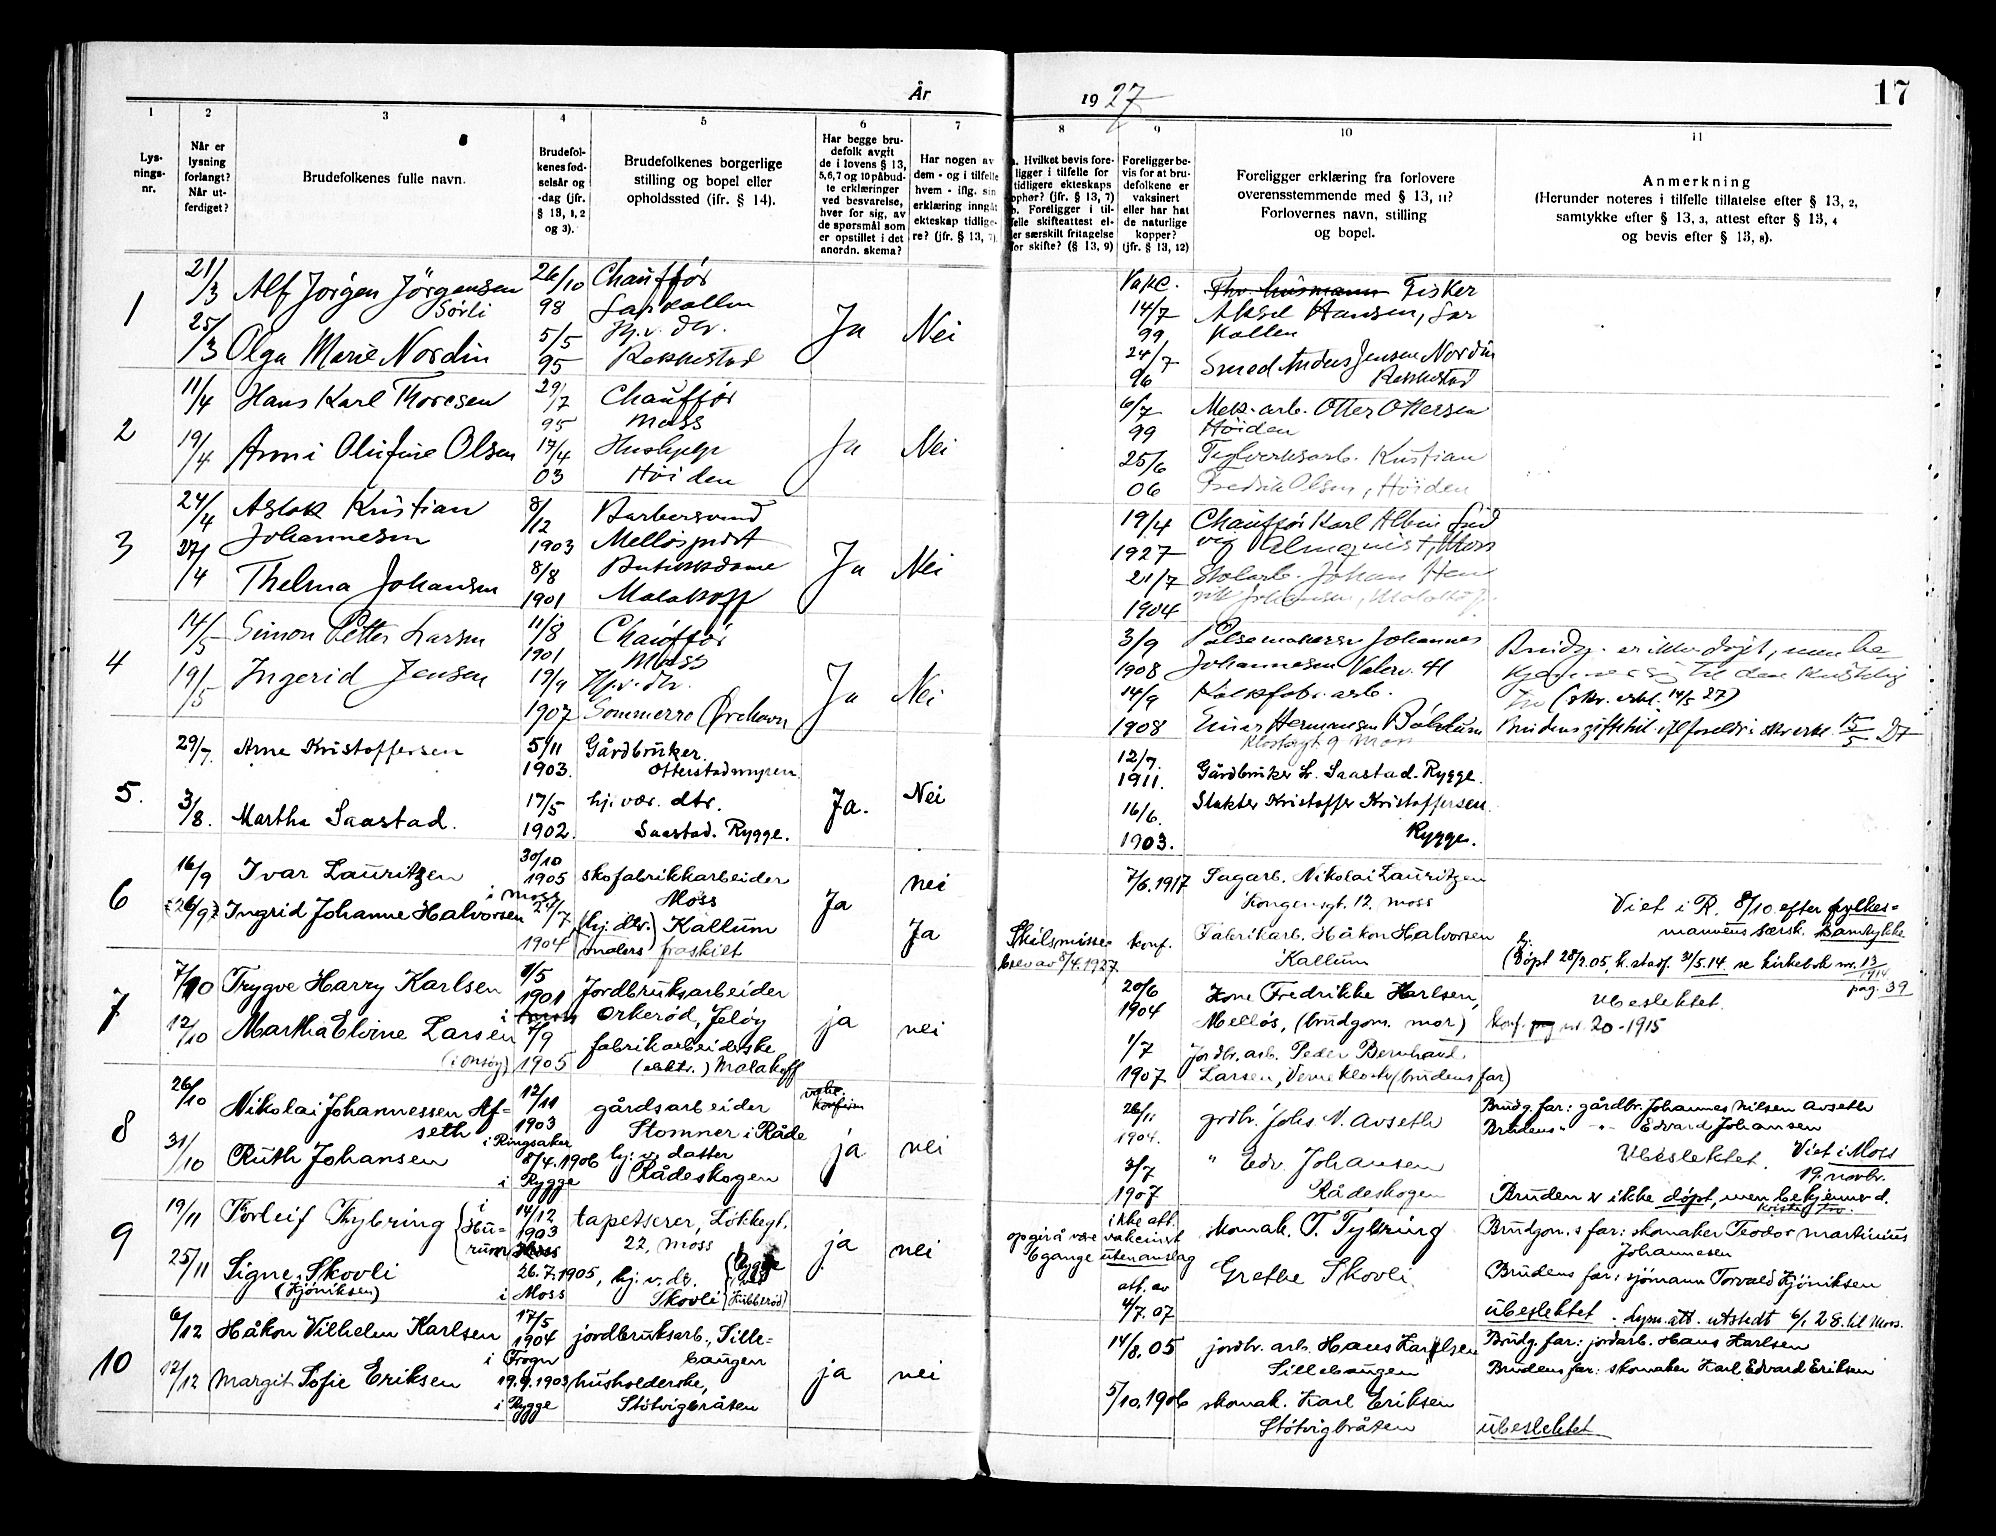 År
1927
17
1
2
3
4
5
6
7
8
9
10
11
Lys-
nings-
nr.
Når er
lysning
forlangt?
Når ut-
ferdiget?
Brudefolkenes fulle navn.
Brudefol-
kenes fød-
selsår og
-dag (jfr.
§ 13, 1, 2
og 3).
Brudefolkenes borgerlige
stilling og bopel eller
opholdssted (ifr. § 14).
Har begge bru-
defolk avgit
de i lovens § 13,
5,6,7 og 10 påbud-
te erklæringer
ved besvarelse,
hver for sig, av
de spørsmål som
er opstillet i det
anordn. skema?
Har nogen av
dem - og i tilfelle
hvem - iflg. sin
erklæring inngåt
ekteskap tidlige-
re? (jfr. § 13, 7).
a. Hvilket bevis fore-
ligger i tilfelle for
tidligere ekteskaps
ophør? (jfr. § 13, 7)
b. Foreligger i til-
felle skifteattest el-
ler særskilt fritagelse
for skifte? (§ 13, 9)
Foreligger be-
vis for at bru-
defolkene er
vaksinert
eller har hat
de naturlige
kopper?
(jfr. § 13, 12)
Foreligger erklæring fra forlovere
overensstemmende med § 13, 11?
Forlovernes navn, stilling
og bopel.
Anmerkning
(Herunder noteres i tilfelle tillatelse efter § 13, 2,
samtykke efter § 13, 3, attest efter § 13, 4
og bevis efter § 13, 8).
1
21/3
25/3
Alf Jörgen Jörgensen
Sörli
Olga Marie Nordin
26/10
98
5/5
95
Chauffør
Hj.v. dtr.
Rakkestad
Ja
Nei
Vakc.
14/7
99
24/7
96
Fisker
Aksel Hansen, Lar
kollen
Smed Anders Jensen Nordin
Rakkestad
2
11/4
19/4
Hans Karl Thoresen
Anni Olufine Olsen
29/7
95
17/4
03
Chauffør
Moss
Hushjelp
Höiden
Ja
Nei
6/7
99
25/6
06
Mek. arb. Otter Ottersen
Höiden
Teglverksarb. Kristian
Fredrik Olsen, Höiden
3
24/4
27/4
Aslak Kristian
Johannesen
Thelma Johansen
8/12
1903
8/8
1901
Barbersvend
Butikkdame
Malakoff
Ja
Nei
19/4
1927
21/7
1904
Chauffør Karl Albin Lud
vig Almquist, Moss
Johan Hen
rik Johansen, Malakoff
4
14/5
19/5
Simon Petter Larsen
Ingerid Jensen
11/8
1901
19/9
1907
Chauffør
Moss
Hj.v. dtr.
Sommerro Ørehavn
Ja
Nei
3/9
1908
14/9
1908
Pølsemakersv. Johannes
Johannesen Valerv. 41
Kalkfabr. arb.
Einar Hermansen Bálum
Klostergt 9 Moss
Brudg. er ikke døpt, men be
kjenner sig til den kristelig
tro (skr. erkl. 14/5 27)
5.
29/7.
3/8.
Arne Kristoffersen
Martha Saastad.
5/11
1903.
17/5
1902.
Gårdbruker.
Otterstadmyren.
hj. vær. dtr.
Saastad. Rygge.
Ja.
Nei
12/7.
1911.
16/6.
1903.
Gårdbruker Kr. Saastad. Rygge.
Slakter Kristoffer Kristoffersen.
Rygge.
6
16/9
26/9
Ivar Lauritzen
i Moss
Ingrid Johanne Halvorsen
30/10
1905
1904
skofabrikkarbeider
Moss
(hj. dtr.) Kallum
(malers) fraskilt
Ja
nei
Ja
Skilsmisse-
brev av 8/4.1927.
7/6.1917
konf.
Sagarb. Nikolai Lauritzen
Kongensgt. 12. Moss
Fabrikarb. Håkon Halvorsen
Kallum
Viet i R. 8/10. efter fylkes-
mannens særsk. samtykke
pag. 39
7
7/10
12/10
Trygve Harry Karlsen
Martha Elvine Larsen
(i Onsøy)
1/5
1901
9/9
1905
Jordbruksarbeider
Orkerød, Jeløy
fabrikarbeiderske
(elektr.) Malakoff
ja
nei
20/6
1904
1/7
1907
Kone Fredrikke Karlsen,
Melløs, (brudgom. mor)
Jordbr. arb. Peder Bernhard
Larsen, Verne kloster (brudens far)
Ubeslektet.
konf. pag nr. 20-1915
8
26/10
31/10
Nikolai Johannessen Af-
seth
i Ringsaker
Ruth Johansen
i Rygge
12/11
1903
8/4.1906
gårdsarbeider
Stomner i Råde
hj. v. datter
Rådeskogen
ja
nei
26/11
1904.
3/7
1907
grdbr. Johs. N. Avseth
" Edv. Johansen
Rådeskogen
Brudg. far: gårdbr. Johannes Nilsen Avseth
Brudens " -"- Edvard Johansen
Ubeslektet. Viet i Moss
19. novbr.
Bruden er ikke døpt, men bekjenner d.
kristne tro.
9
19/11
25/11
Torleif Tybring
i Hu-
rum
Signe Skovli
(Kjöniksen)
14/12
1903
26.7.1905,
i Moss
tapetserer, Løkkegt.
22, Moss
hj. v. dr.
Skovli
ja
nei
opgir å være
6 gange
ikke att.
vakcinst
uten anslag
att. av
4/7.07
skomak. T. Tybring
Grethe Skovli
Brudgom.s far: skomaker Teodor Martinius
Johannesen
Brudens far: sjömann Torvald Kjöniksen
ubeslektet. Lysn. att. utstedt 6/1 28. til Moss.
10
6/12
12/12
Håkon Vilhelm Karlsen
i Frogn
Margit Sofie Eriksen
i Rygge
17/5
1904
19.9.1903
jordbruksarb., Sille-
baugen
husholderske,
Støtvigbråten
ja
nei
14/8.05
5/10.1906
jordbr. arb. Hans Karlsen
Sillebaugen
skomak. Karl Eriksen
Støtvigbråten
Brudg. far: jordarb. Hans Karlsen
Brudens far: skomaker Karl Edvard Eriksen
ubeslektet